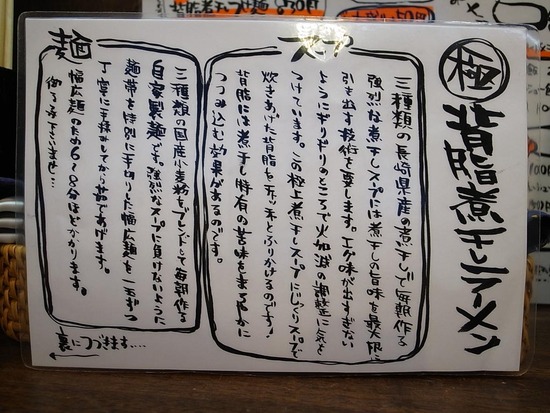 極 背脂煮干しラーメン
スープ
三種類の長崎県産の煮干しで毎朝作る
強烈な煮干しスープには煮干しの旨味を最大限に
引き出す技術を要します。エグ味が出すぎない
ようにギリギリのところで火加減の調整に気を
つけています。この極上煮干しスープにじっくりスープで
炊きあげた背脂をチャッチャとふりかけるのです!
背脂には煮干し特有の苦味をまろやかに
つつみ込む効果があるのです。
麺
三種類の国産小麦粉をブレンドして毎朝作る
自家製麺です。強烈なスープに負けないように
麺帯を特別に手切りした幅広麺を一玉ずつ
丁寧に手揉みしてから茹であげます。
幅広麺のため6~8分ほどかかります。
御了承下さいませ…
裏につづきます....